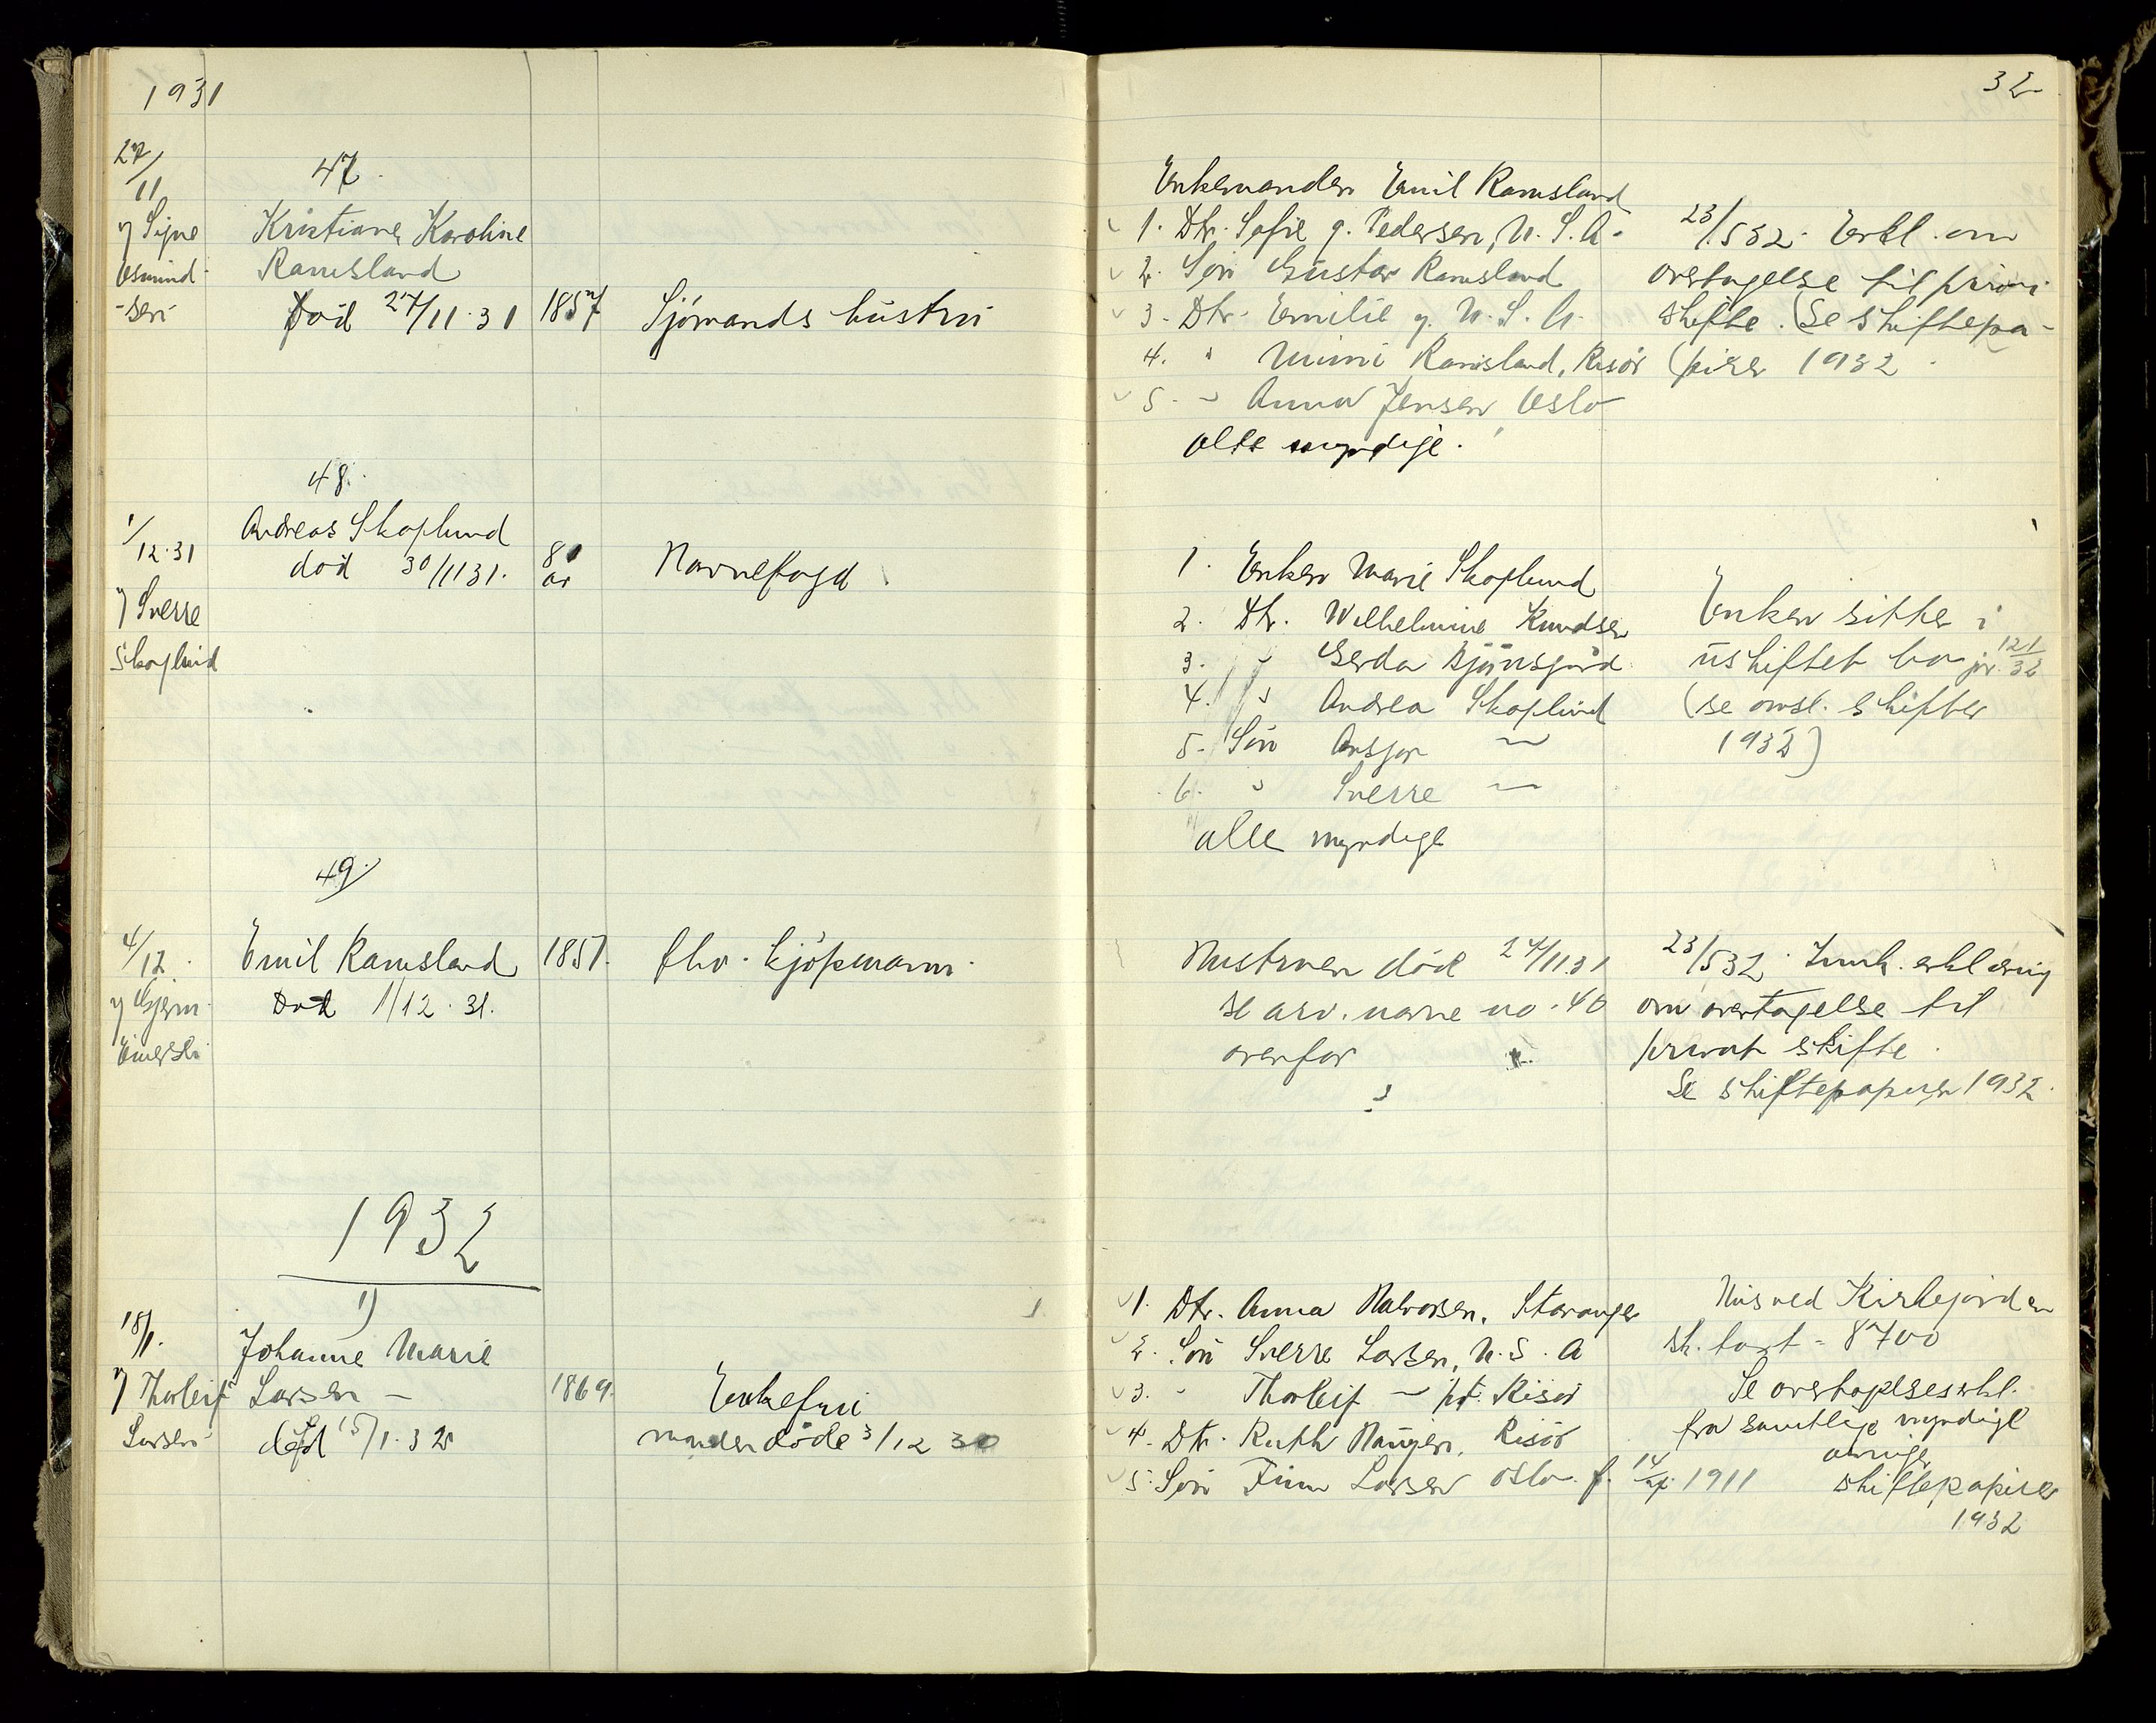 1931
32
27/11
47.
Kristiane Karoline
Ramsland
Død 27/11.31
1857
Sjömands hustru
Enkemanden Emil Ramsland
1. Dtr. Sofie g. Pedersen, U.S.A.
2. Sön Gustav Ramsland
3. Dtr. Emilie g. U.S.A.
4. " Mimi Ramsland, Risör
5. " Anna Jensen, Oslo
alle myndige.
23/5 32. Erkl. om
overtagelse til
skifte. (Se skiftepa-
pirer 1932
48.
1/12.31
Sverre
Skoplund
Andreas Skoplund
död 30/11 31.
80
år
Havnefogd
1. Enken Marie Skoplund
2. Dtr. Wilhelmine Knudsen
3. " Gerda
4. " Andrea Skoplund
5. Sön Ansgar —
6. " Sverre —
alle myndige
Enken sitter i
uskiftet bo jr. 121/32
(se omsl. skifter
1932)
49
4/12
Emil Ramsland
Död 1/12.31.
1851.
fhv. kjöpmann
Hustruen död 24/11 31
se arv. navne no. 40
ovenfor
23/5 32. Innk. erklæring
om overtagelse til
privat skifte.
Se skiftepapirer 1932.
1932
1)
18/1.
Thorleif
Larsen
Johanne Marie
Larsen —
död 15/1.32
1869.
Enkefru
manden döde 3/12 30
1. Dtr. Anna Halvorsen, Stavanger
2. Sön Sverre Larsen, U.S.A
3. " Thorleif — pt. Risör
4. Dtr. Ruth Haugen, Risör
5. Sön Finn Larsen Oslo f. 1911
Hus ved Kirkejorden
sk. takst = 8700
Se overtagelseserkl.
fra samtlige myndige
arvinger
skiftepapirer
1932